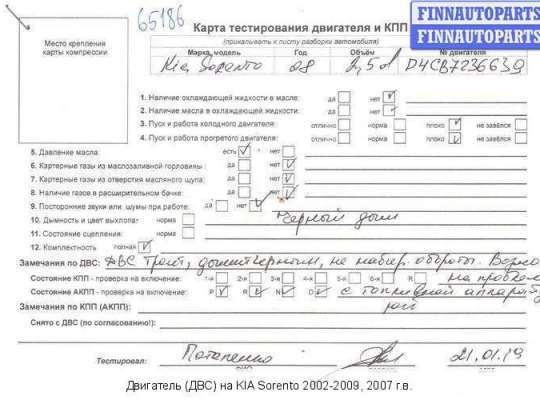 65186
FINNAUTOPARTS
FINNAUTOPARTS
Место крепления карты компрессии
Карта тестирования двигателя и КПП
(прикалывать к листу разборки автомобиля)
Марка, модель Год Объём № двигателя
Kia Soranto 08 2,5d D4CB7236639
1. Наличие охлаждающей жидкости в масле: да нет
2. Наличие масла в охлаждающей жидкости: да нет
3. Пуск и работа холодного двигателя: отлично норма плохо не завёлся
4. Пуск и работа прогретого двигателя: отлично норма плохо не завёлся
5. Давление масла: есть нет
6. Картерные газы из маслозаливной горловины: да нет
7. Картерные газы из отверстия масляного щупа: да нет
8. Наличие газов в расширительном бачке: да нет
9. Посторонние звуки или шумы при работе: да нет
10. Дымность и цвет выхлопа: норма Черный дым
11. Состояние сцепления: норма
12. Комплектность полная
Замечания по ДВС: ДВС троит, дымит черным, не набир. обороты.
Состояние КПП - проверка на включение: 1-я 2-я 3-я 4-я 5-я 6-я R на проблем
Состояние АКПП - проверка на включение: P R N D с топливной аппарату
Замечания по КПП (АКПП): рой
Снято с ДВС (по согласованию!):
Тестировал: Потапенко 21.01.19
Двигатель (ДВС) на KIA Sorento 2002-2009, 2007 г.в.